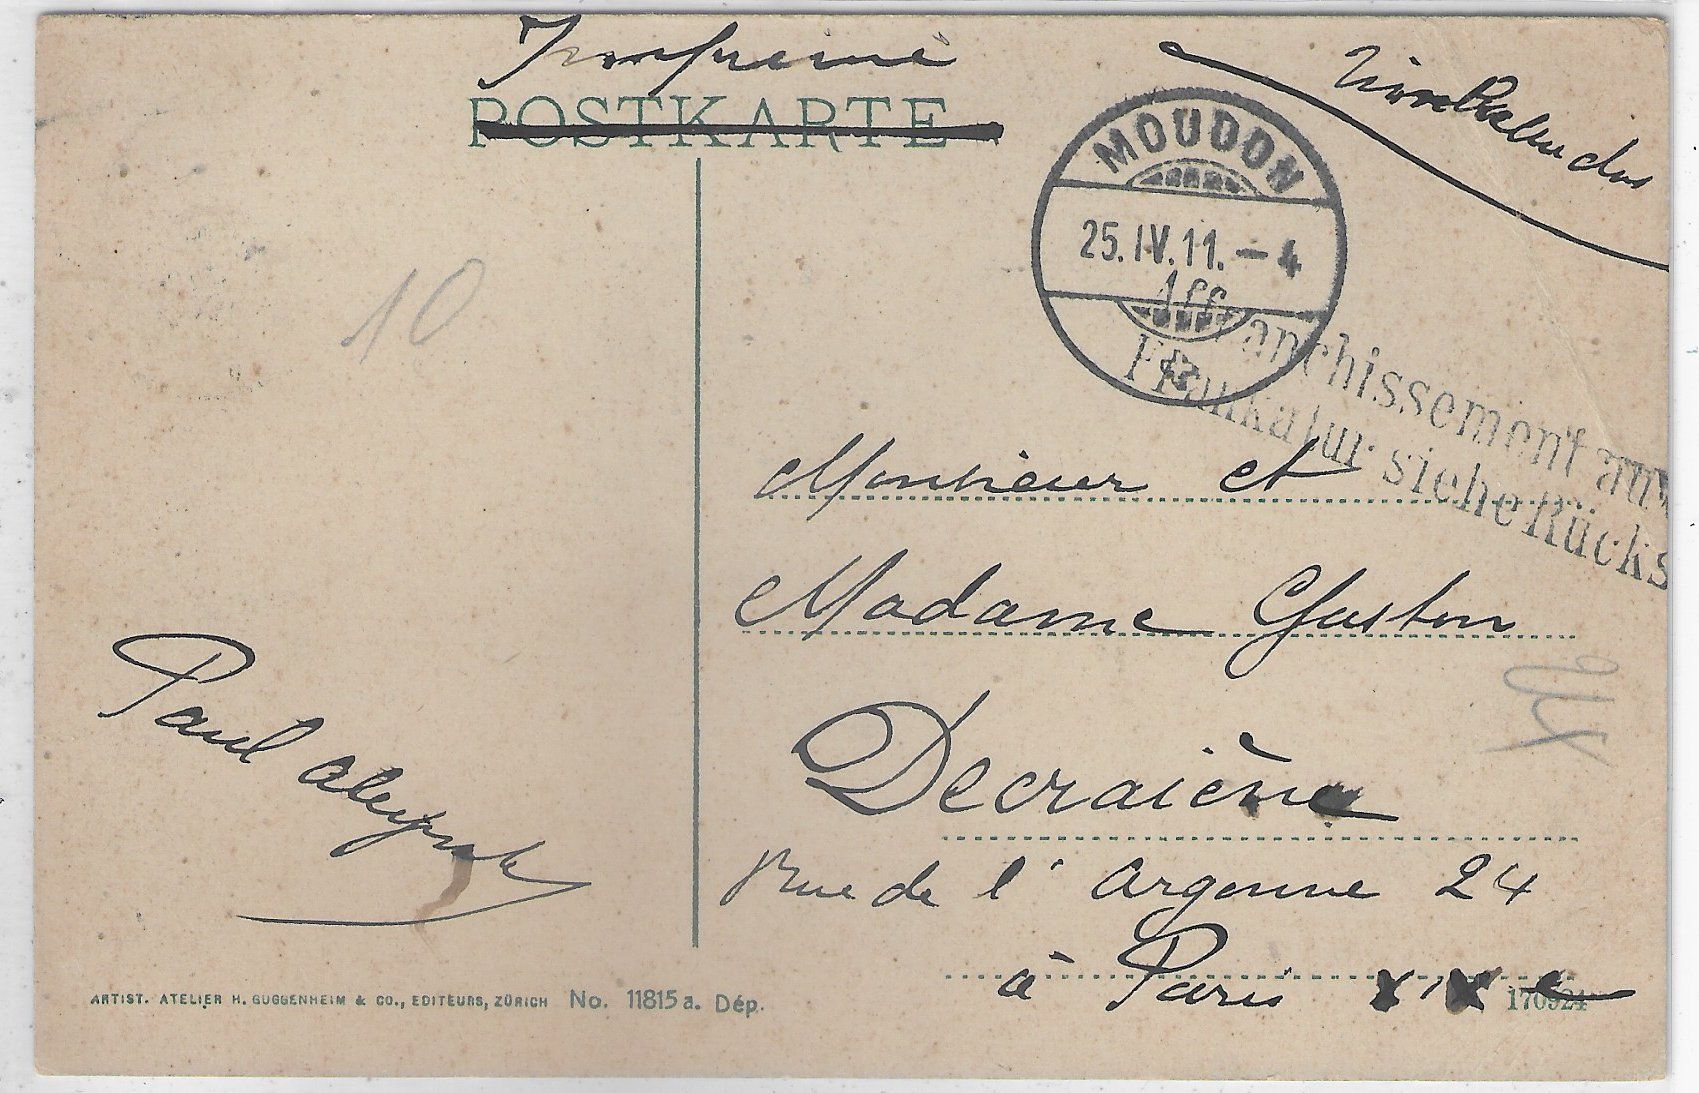 Imprimé
POSTKARTE
Timbre au dos
MOUDON
25.IV.11.–4
Affranchissement au v
Frankatur siehe Rücks
10
Monsieur et
Madame Gaston
Decraiène
Rue de l'Argonne 24
à Paris XIXe
Paul
ARTIST. ATELIER H. GUGGENHEIM & CO., EDITEURS, ZÜRICH No. 11815a. Dép.
170924